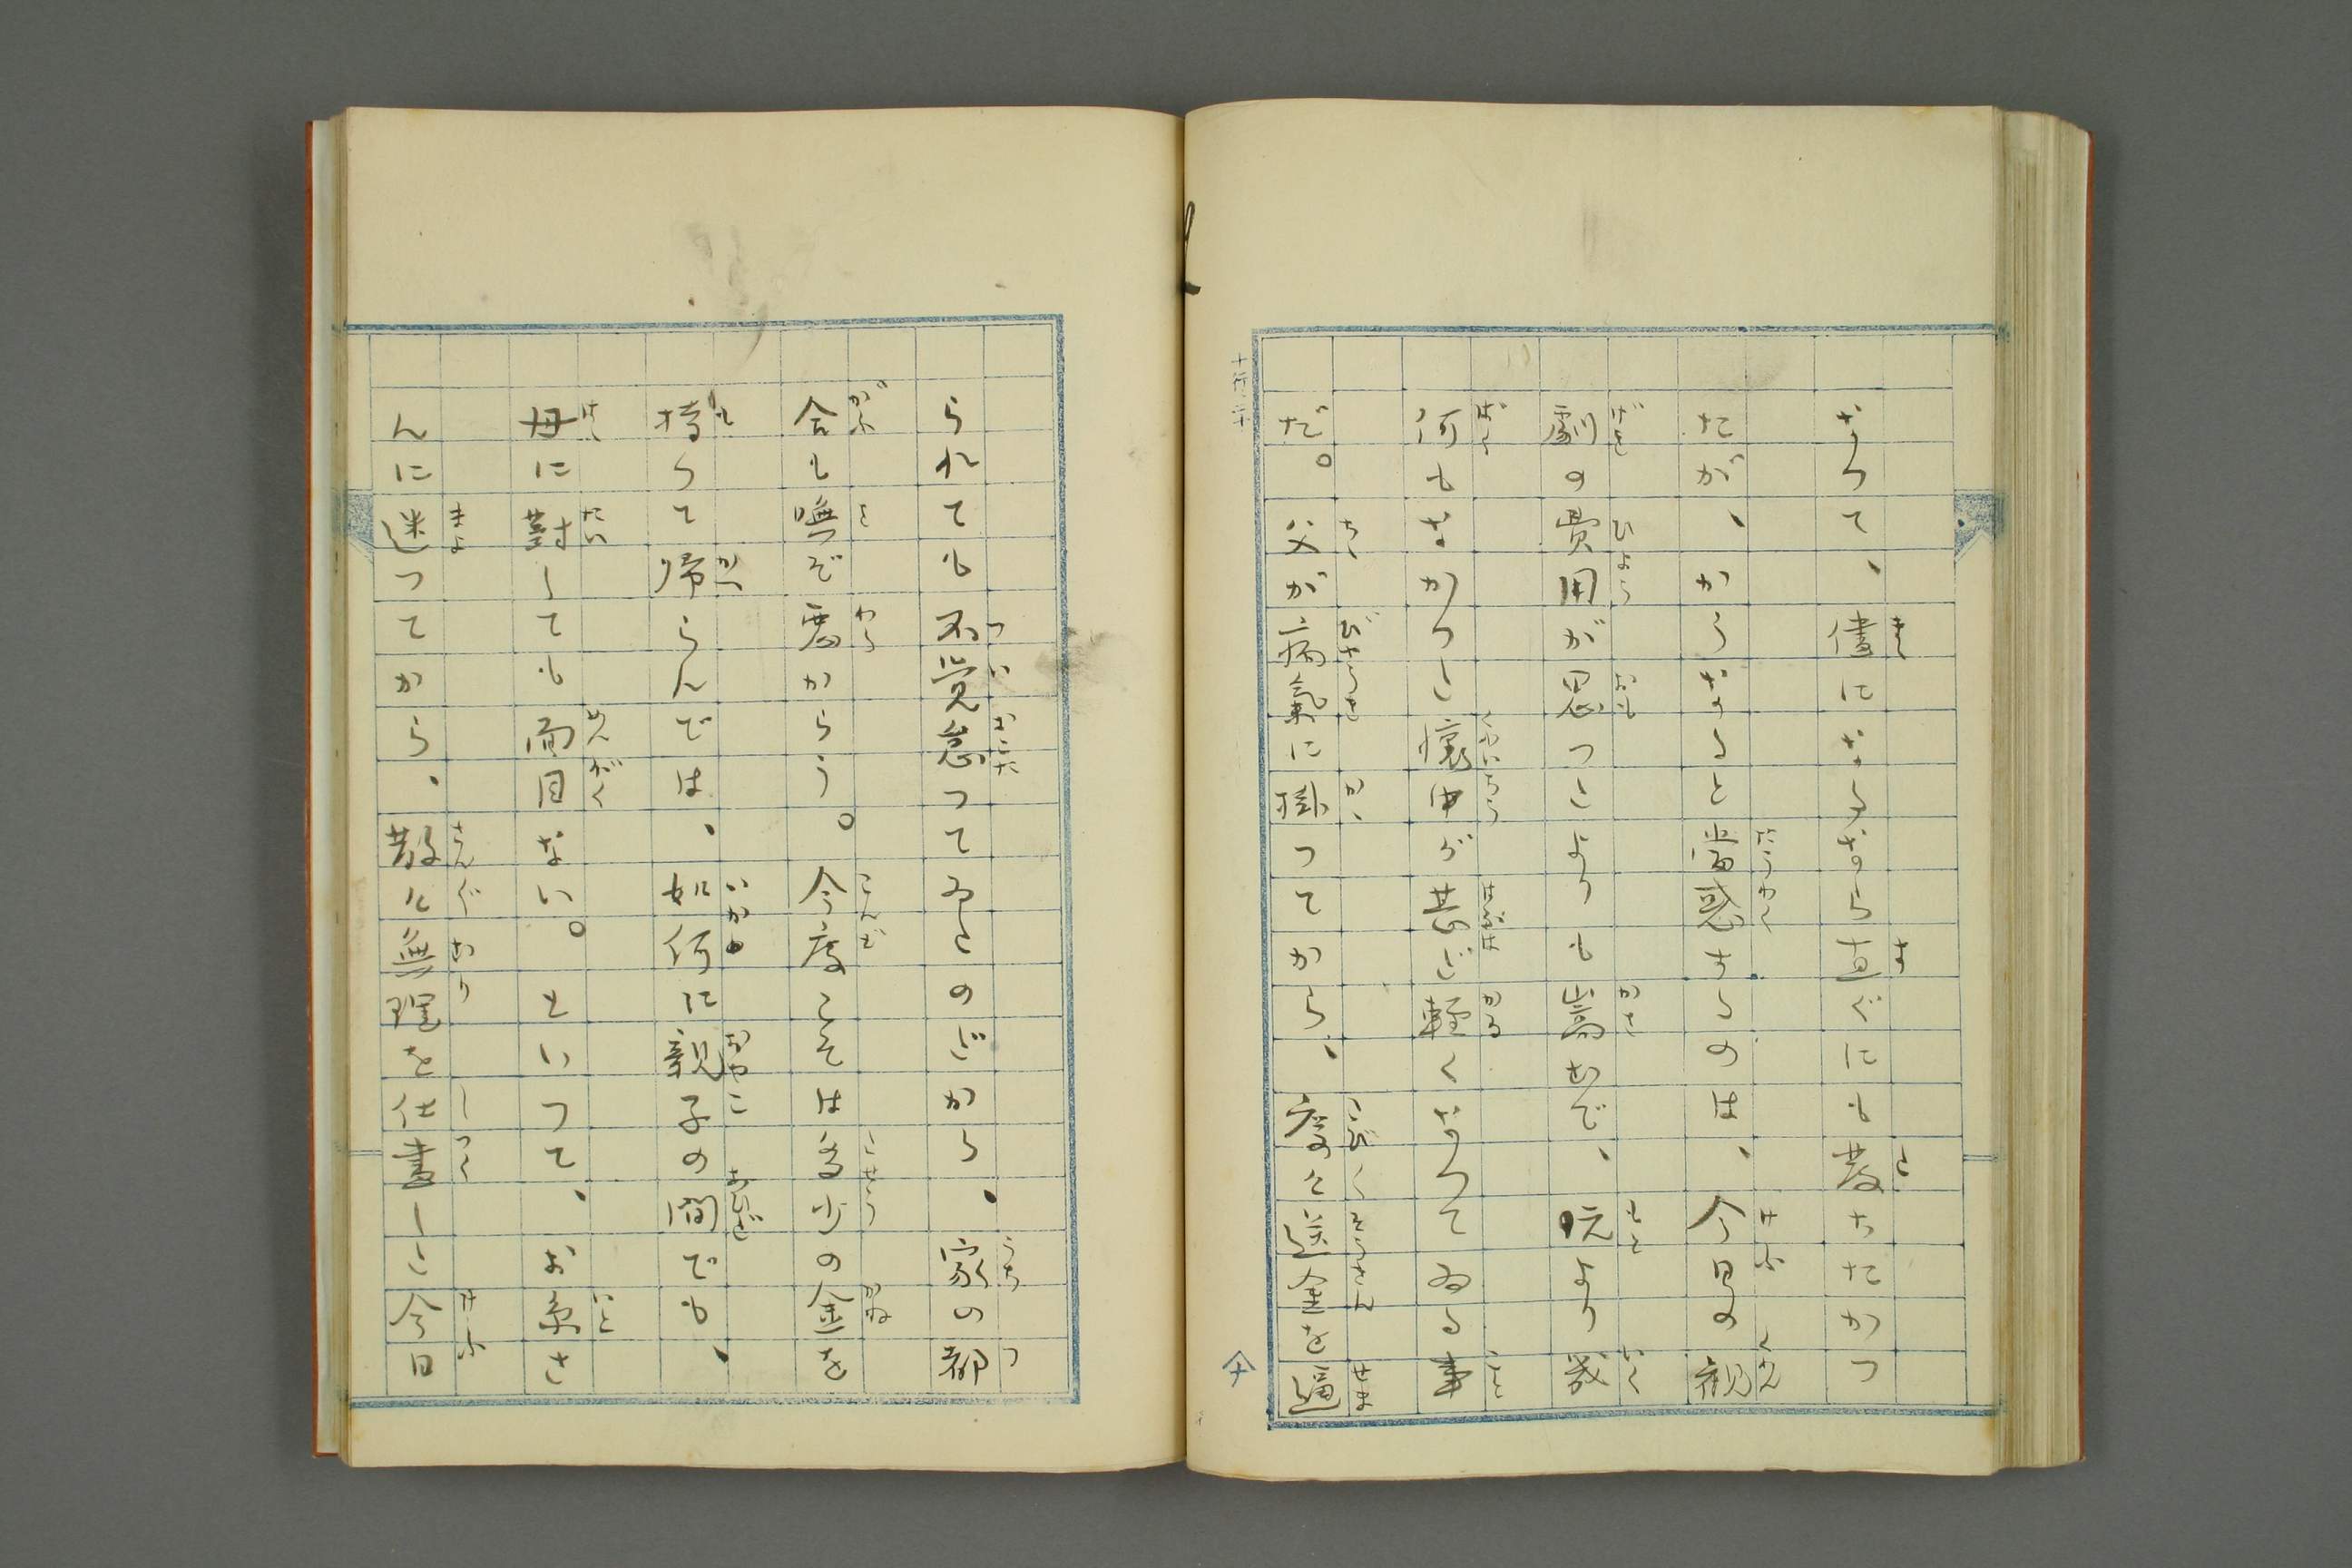 なつて、儘になるなら直ぐにも發ちたかつ
たが、かうなると當惑するのは、今日の觀
劇の費用が思つたよりも嵩むで、元より幾
何もなかつた懷中が甚だ輕くなつてゐる事
だ。父が病氣に掛つてから、度々送金を逼
られても不覺怠つてゐたのだから、家の都
合も嘸ぞ惡からう。今度こそは多少の金を
持つて歸らんでは、如何に親子の間でも、
母に對しても面目ない。といつて、お糸さ
んに迷つてから、散々無理を仕盡した今日
十行二十